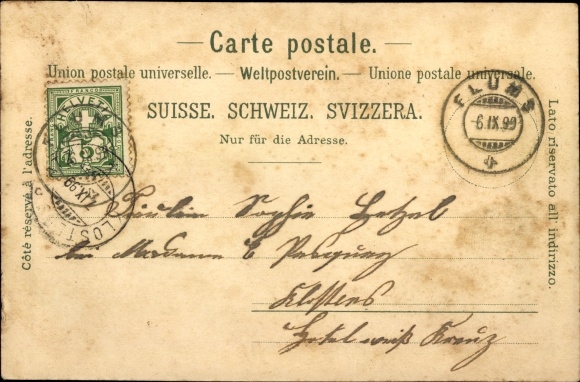 — Carte postale. —
Union postale universelle. — Weltpostverein. — Unione postale universale.
SUISSE. SCHWEIZ. SVIZZERA.
Nur für die Adresse.
Côté réservé à l'adresse.
Lato riservato all' indirizzo.
FRANCO
HELVETIA
5
FLUMS
-6.IX.99
Fräulein Sophie Hetzel
bei Madame
Klosters
Hotel weiß Kreuz